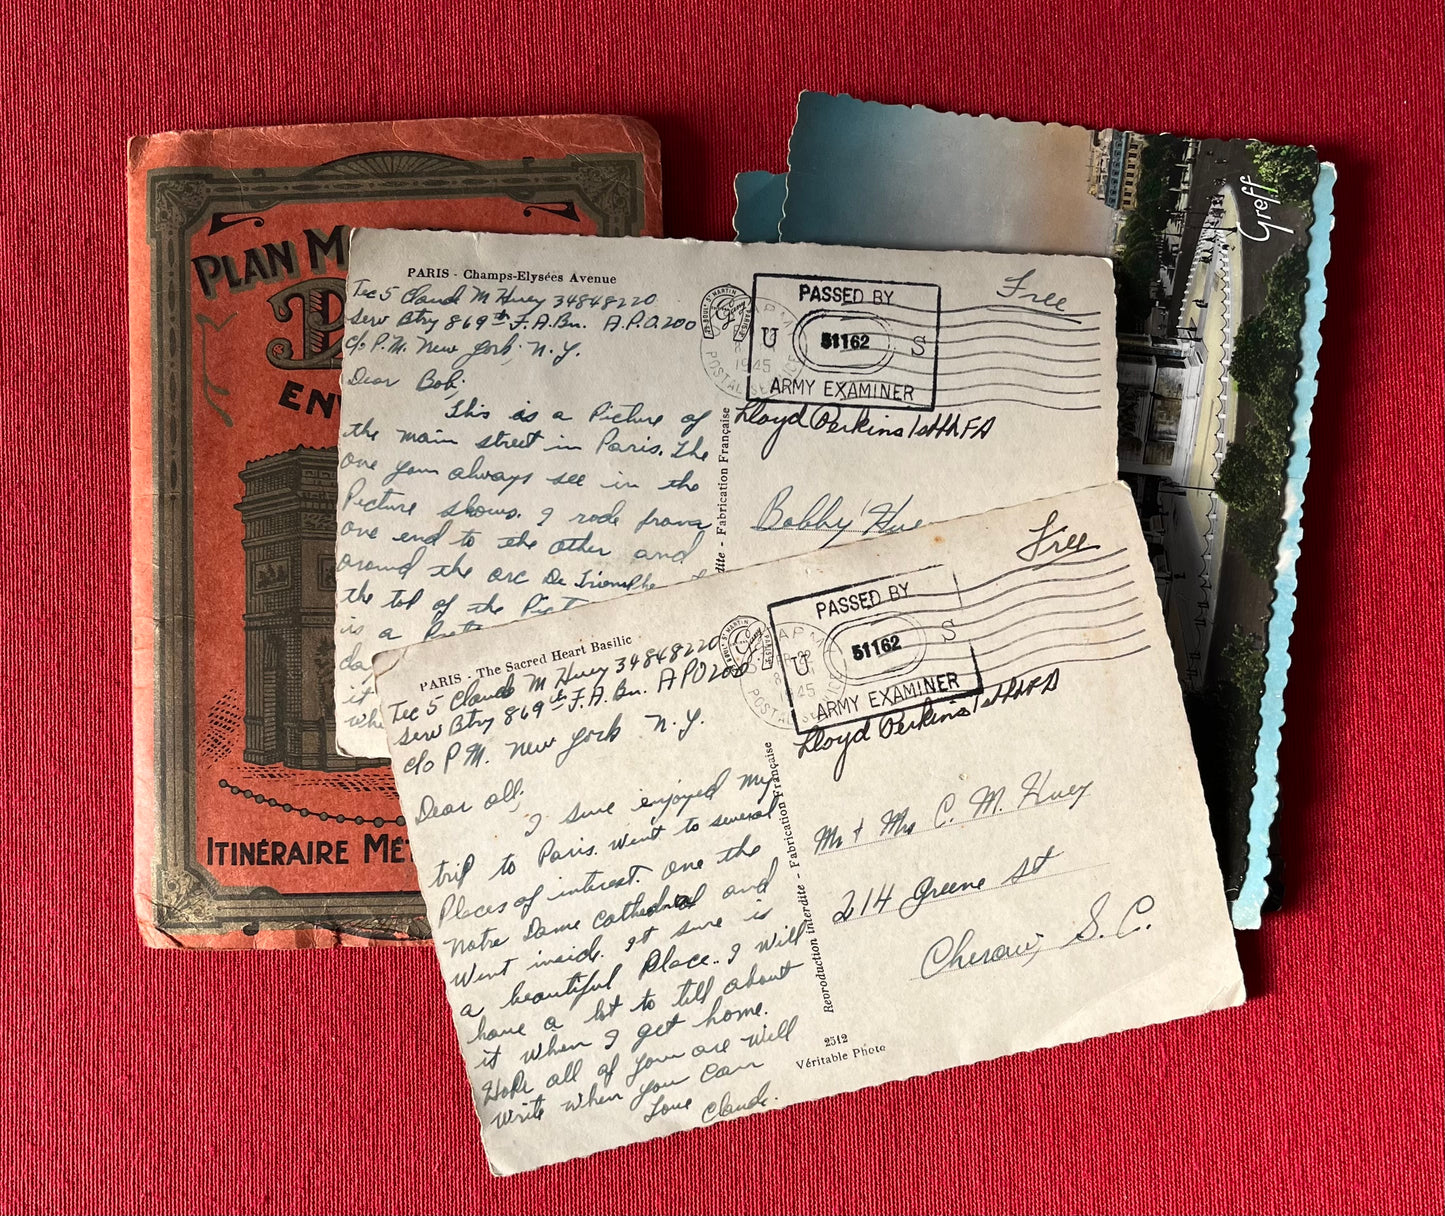 PLAN M
EN
ITINÉRAIRE MÉT
Greff
PARIS - Champs-Elysées Avenue
Tec 5 Claude M Huey 34848220
Serv Btry 869th F.A.Bn. A.P.O. 200
c/o P.M. New York, N.Y.
Dear Bob;
This is a Picture of
the main street in Paris. The
one you always see in the
Picture shows. I rode from
one end to the other and
around the arc De Triomphe
the top of the Pict
is a
da
it
whe
Free
U.S. ARMY
POSTAL SERVICE
1945
PASSED BY
U 51162 S
ARMY EXAMINER
Lloyd Perkins 1st Lt FA
Bobby Hue
dite - Fabrication Française
PARIS - The Sacred Heart Basilic
Tec 5 Claude M Huey 34848220
Serv Btry 869th F.A. Bn. APO 200
c/o P M. New York N.Y.
Dear all;
I sure enjoyed my
trip to Paris. Went to several
Places of interest. one the
Notre Dame Cathedral and
Went inside. It sure is
a beautiful Place.. I Will
have a lot to tell about
it when I get home.
Hope all of you are Well
Write when you can
Love Claude.
Free
POSTAL SERVICE
1945
PASSED BY
U 51162 S
ARMY EXAMINER
Lloyd Perkins 1st Lt FA
Mr + Mrs C. M. Huey
214 Greene St
Cheraw, S.C.
Reproduction interdite - Fabrication Française
2512
Véritable Photo